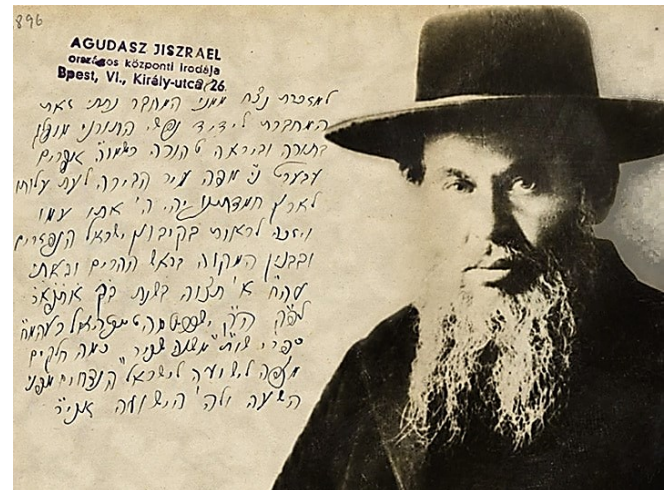 896
AGUDASZ JISZRAEL
országos központi irodája
Bpest, VI., Király-utca 26.
למזכרת נצח ממני המחבר נתתי זאת
המחברת לידיד נפשי התורני מופלג
בתורה וביראה טהורה כשמו״ה אפרים
נ״י מפה עיר הבירה לעת עלותו
לארץ חמדתינו יהי ה׳ אתו עמו
ויזכה לראות בקיבוץ ישראל הנפזרים
ובבנין המקוה בראש ההרים ובאתי
עה״ח א׳ תצוה בשנת
לפ״ק הק׳
ספרי שו״ת משנה שכיר כמה חלקים
מצפה לישועה לישראל
השעה ולה׳ הישועה